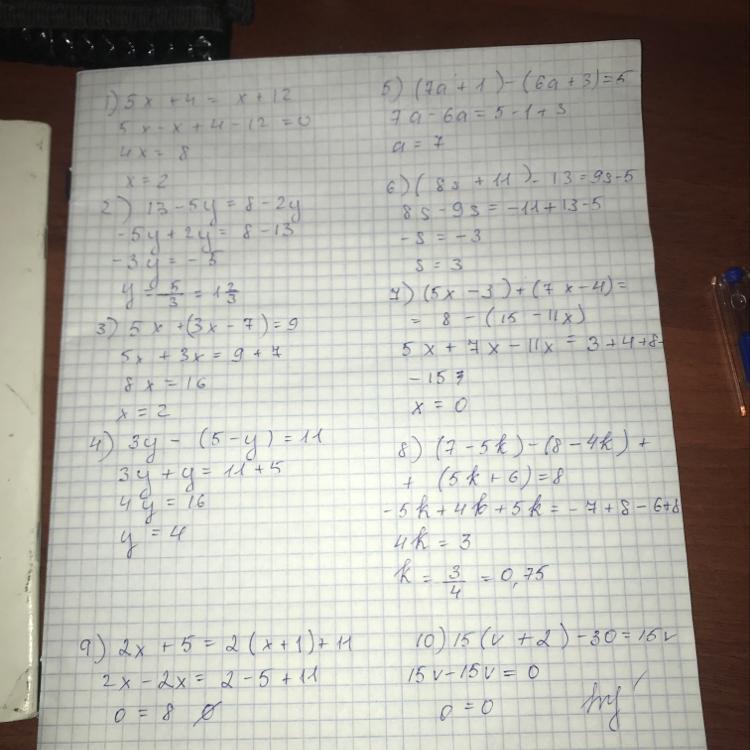 1) 5x + 4 = x + 12
5x - x + 4 - 12 = 0
4x = 8
x = 2
2) 13 - 5y = 8 - 2y
-5y + 2y = 8 - 13
-3y = -5
y = 5/3 = 1 2/3
3) 5x + (3x - 7) = 9
5x + 3x = 9 + 7
8x = 16
x = 2
4) 3y - (5 - y) = 11
3y + y = 11 + 5
4y = 16
y = 4
5) (7a + 1) - (6a + 3) = 5
7a - 6a = 5 - 1 + 3
a = 7
6) (8s + 11) - 13 = 9s - 5
8s - 9s = -11 + 13 - 5
-s = -3
s = 3
7) (5x - 3) + (7x - 4) =
= 8 - (15 - 11x)
5x + 7x - 11x = 3 + 4 + 8 -
- 15
x = 0
8) (7 - 5k) - (8 - 4k) +
+ (5k + 6) = 8
-5k + 4k + 5k = -7 + 8 - 6 + 8
4k = 3
k = 3/4 = 0,75
9) 2x + 5 = 2(x + 1) + 11
2x - 2x = 2 - 5 + 11
0 = 8 ∅
10) 15(v + 2) - 30 = 15v
15v - 15v = 0
0 = 0